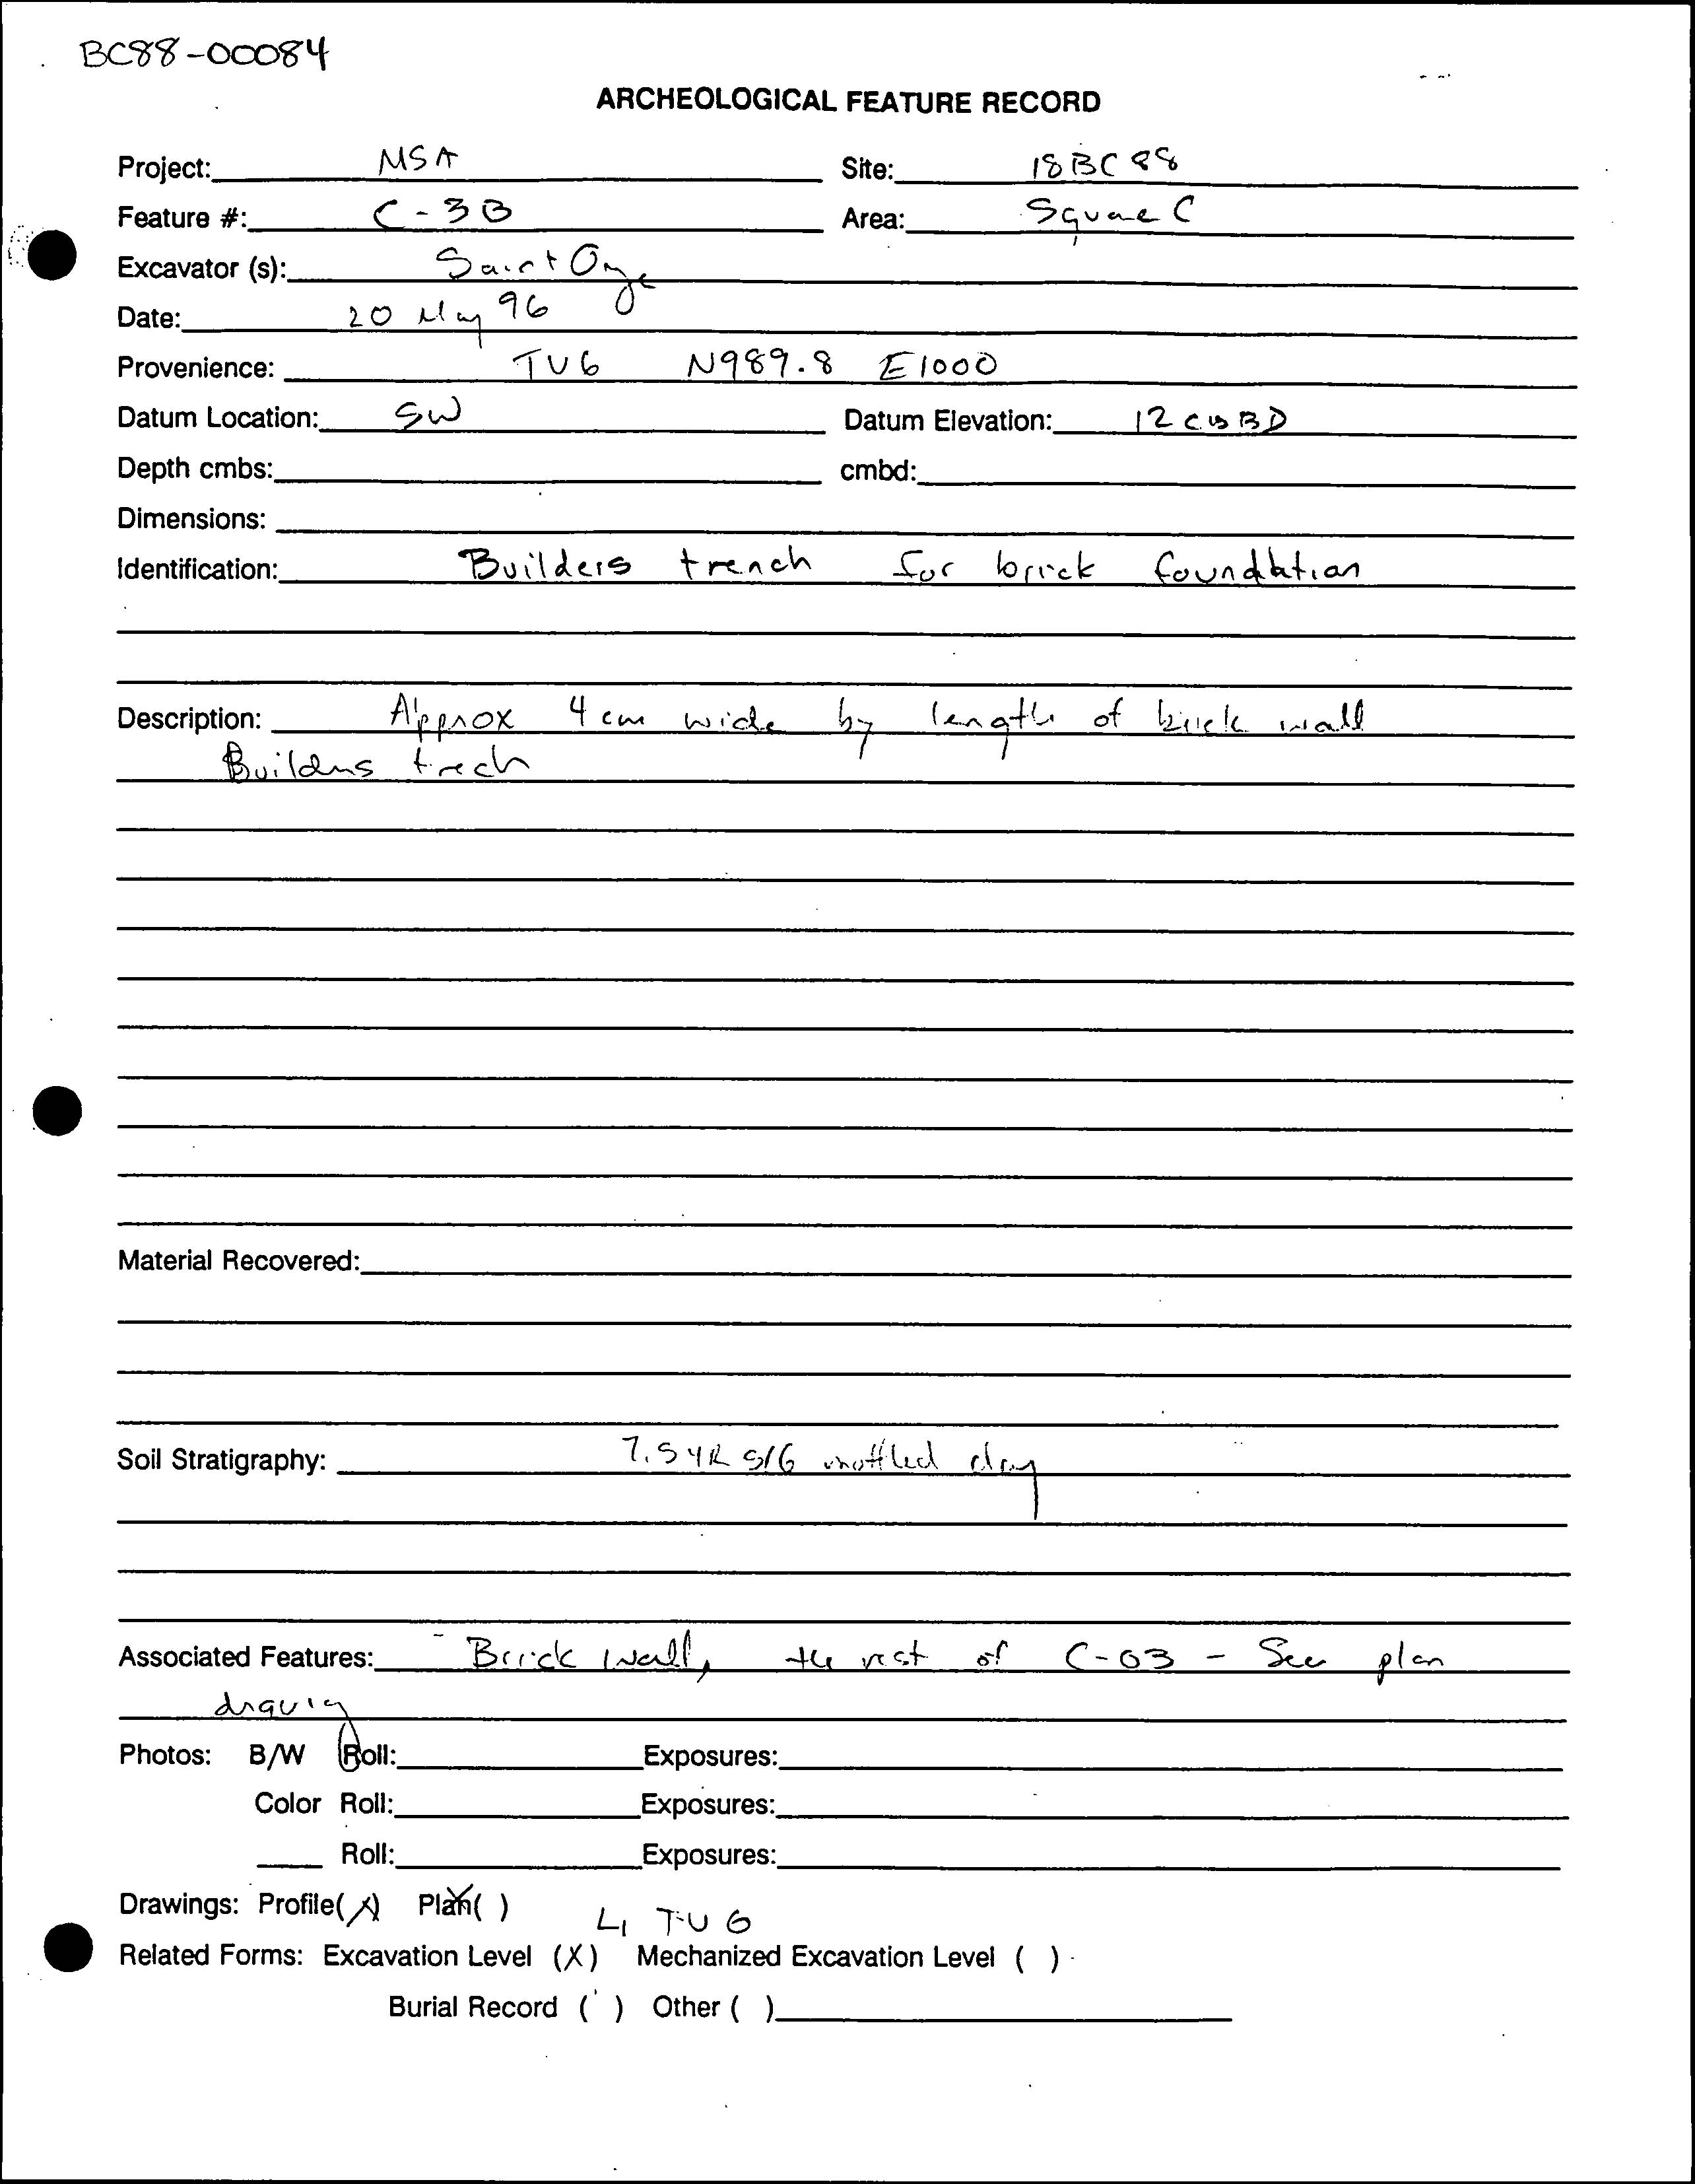 BC88-00084
ARCHEOLOGICAL FEATURE RECORD
Project: MSA Site: 18BC88
Feature #: C-3B Area: Square C
Excavator (s): Saint Onge
Date: 20 May 96
Provenience: TU6 N989.8 E1000
Datum Location: SW Datum Elevation: 12 cmBD
Depth cmbs: cmbd:
Dimensions:
Identification: Builders trench for brick foundation
Description: Approx 4 cm wide by length of brick wall
Builders trech
Material Recovered:
Soil Stratigraphy: 7.5YR 5/6 mottled clay
Associated Features: Brick wall, the rest of C-03 - See plan
Photos: B/W Roll: Exposures:
Color Roll: Exposures:
Roll: Exposures:
Drawings: Profile(X) Plan( )
L1 TU6
Related Forms: Excavation Level (X) Mechanized Excavation Level ( )
Burial Record ( ) Other ( )